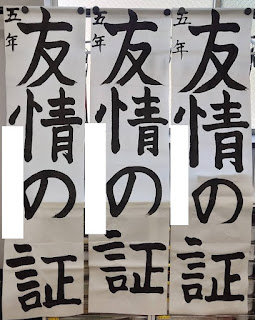 友情の証
五年
友情の証
五年
友情の証
五年